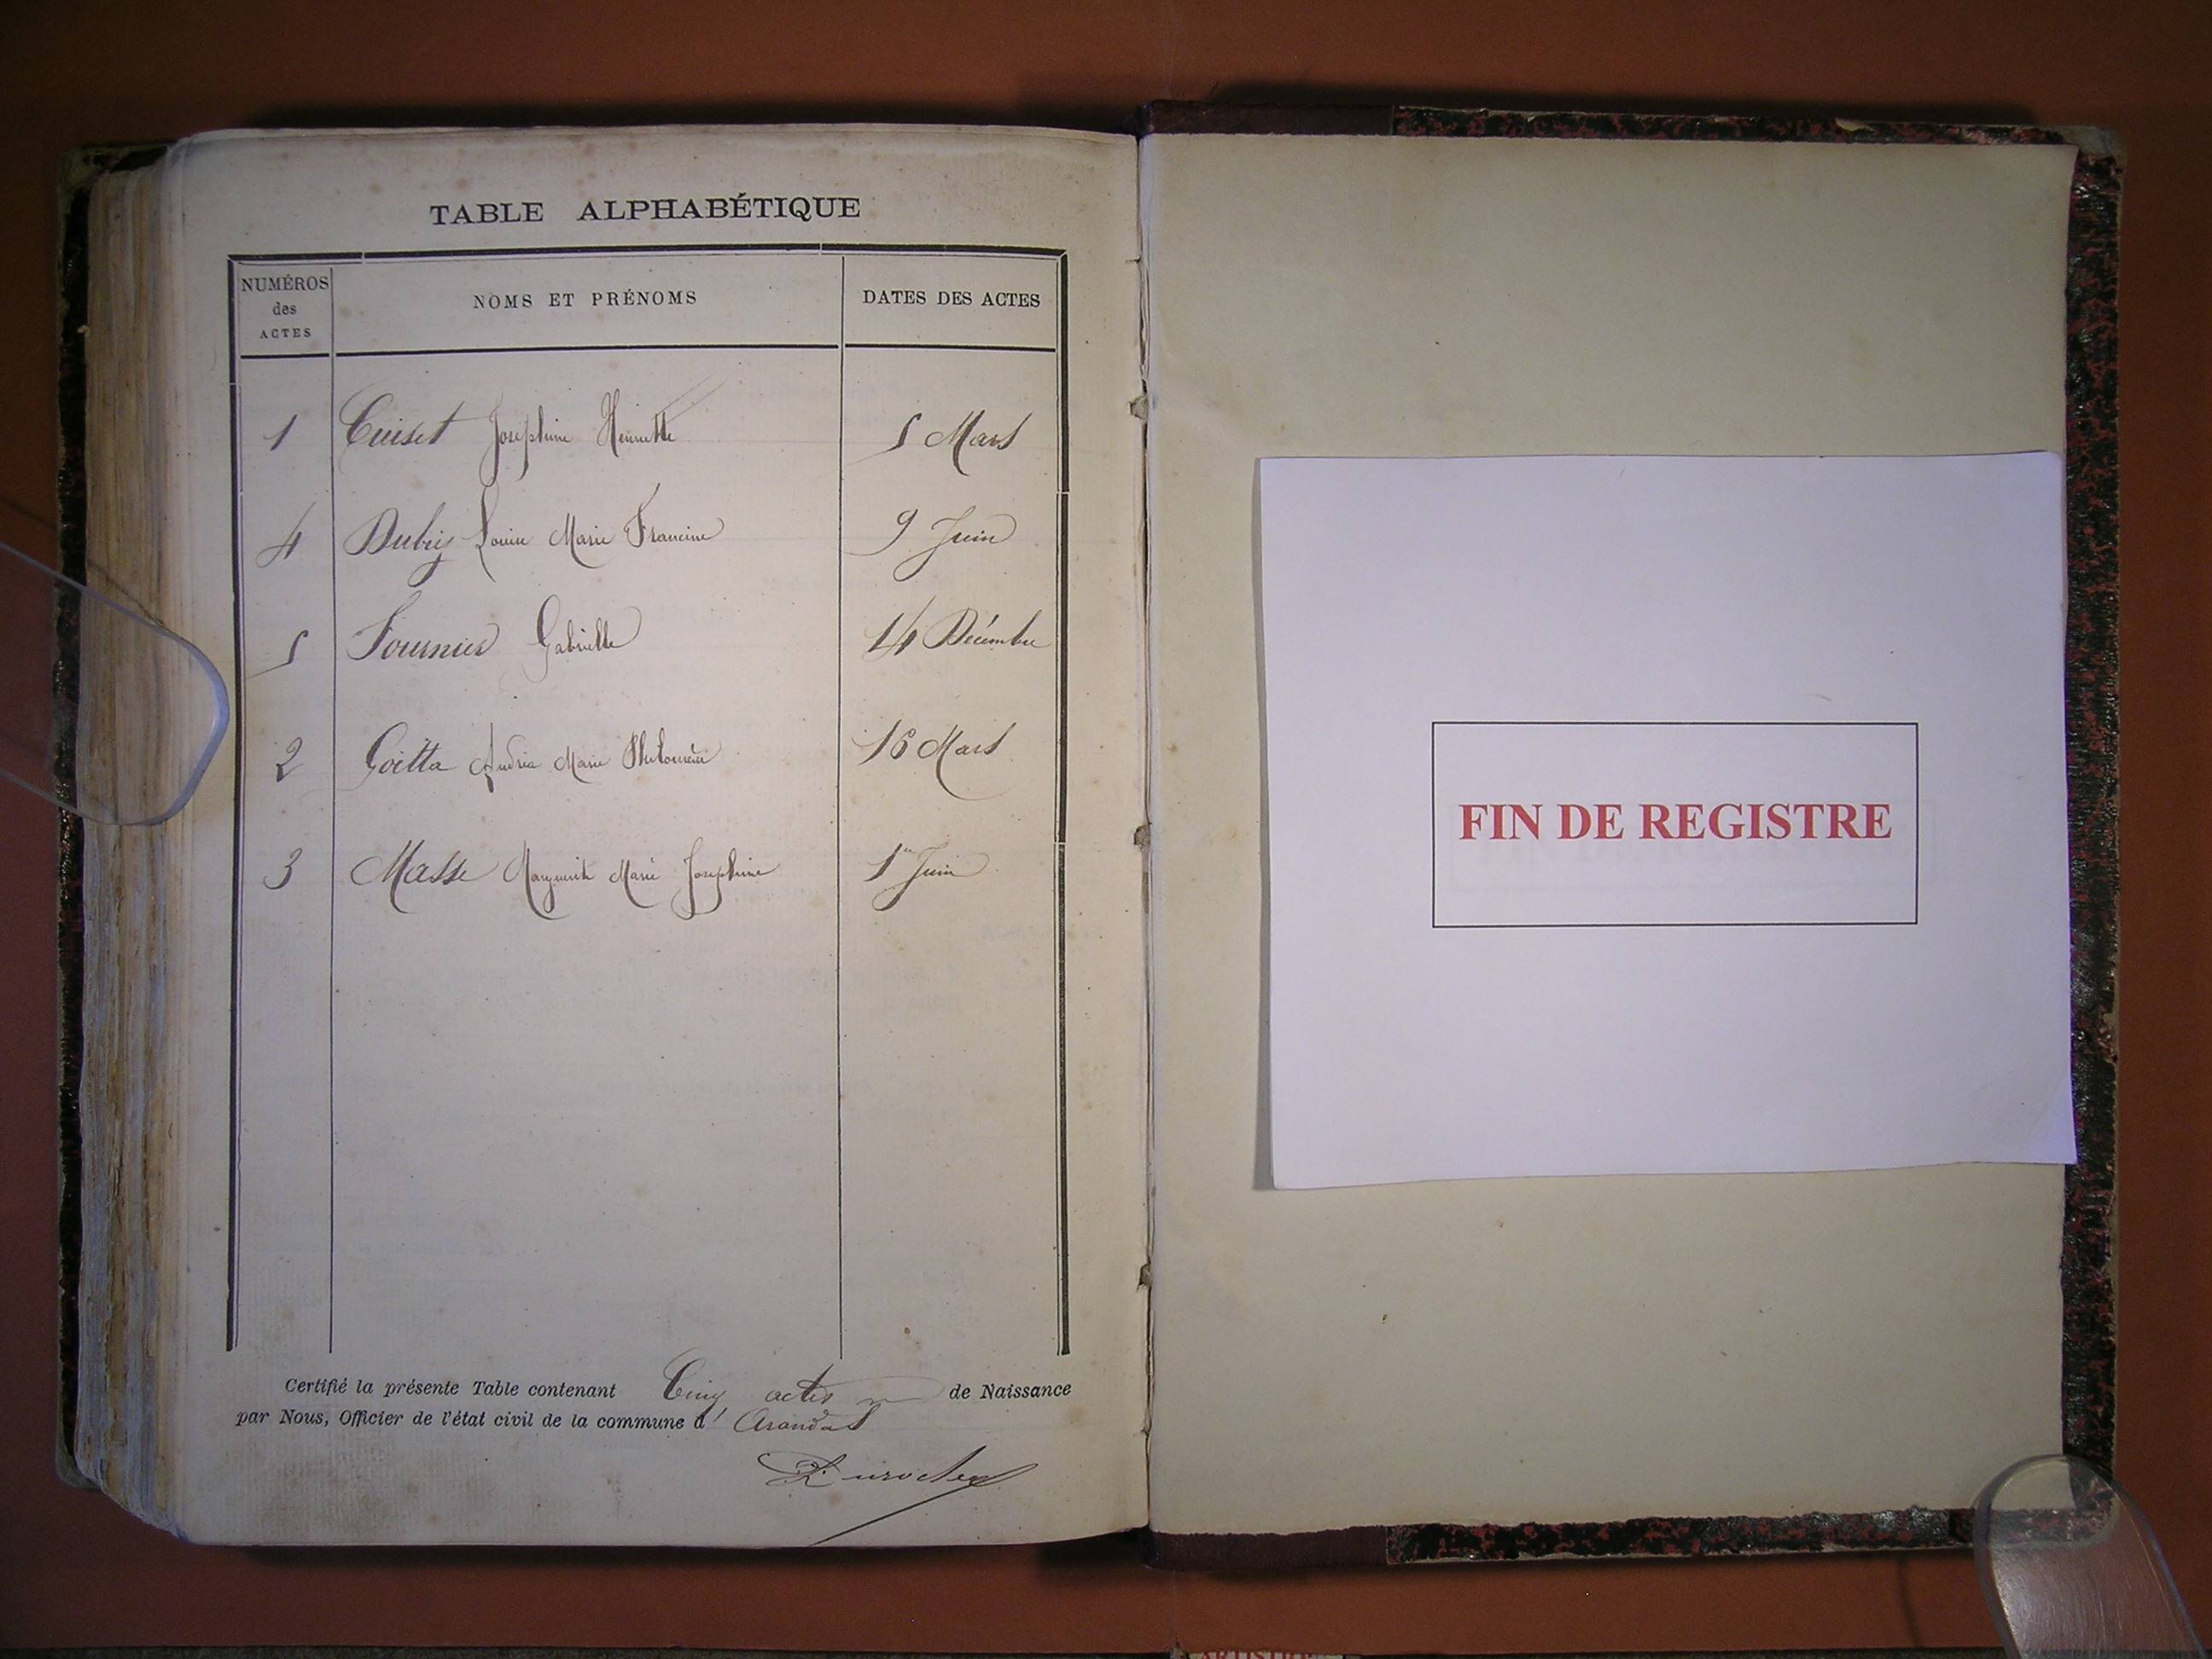 TABLE ALPHABÉTIQUE
NUMÉROS des ACTES
NOMS ET PRÉNOMS
DATES DES ACTES
1 Cuiset Joséphine Henriette 5 Mars
4 Dubrez Louise Marie Francine 9 Juin
5 Fournier Gabrielle 14 Décembre
2 Goitta Andréa Marie 16 Mars
3 Masse Marguerite Marie Joséphine 1er Juin
Certifié la présente Table contenant Cinq actes de Naissance
par Nous, Officier de l'état civil de la commune d' Arandas
FIN DE REGISTRE